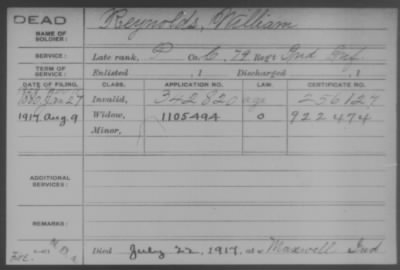 DEAD
NAME OF SOLDIER: Reynolds, William
SERVICE: Late rank, P Co. C, 79 Reg't Ind Inf
TERM OF SERVICE: Enlisted , 1 Discharged , 1
DATE OF FILING. CLASS. APPLICATION NO. LAW. CERTIFICATE NO.
1880, Jan 27 Invalid, 342820 age 256127
1917 Aug 9 Widow, 1105494 O 922474
Minor,
ADDITIONAL SERVICES:
REMARKS:
Died July 22, 1917, at Maxwell Ind